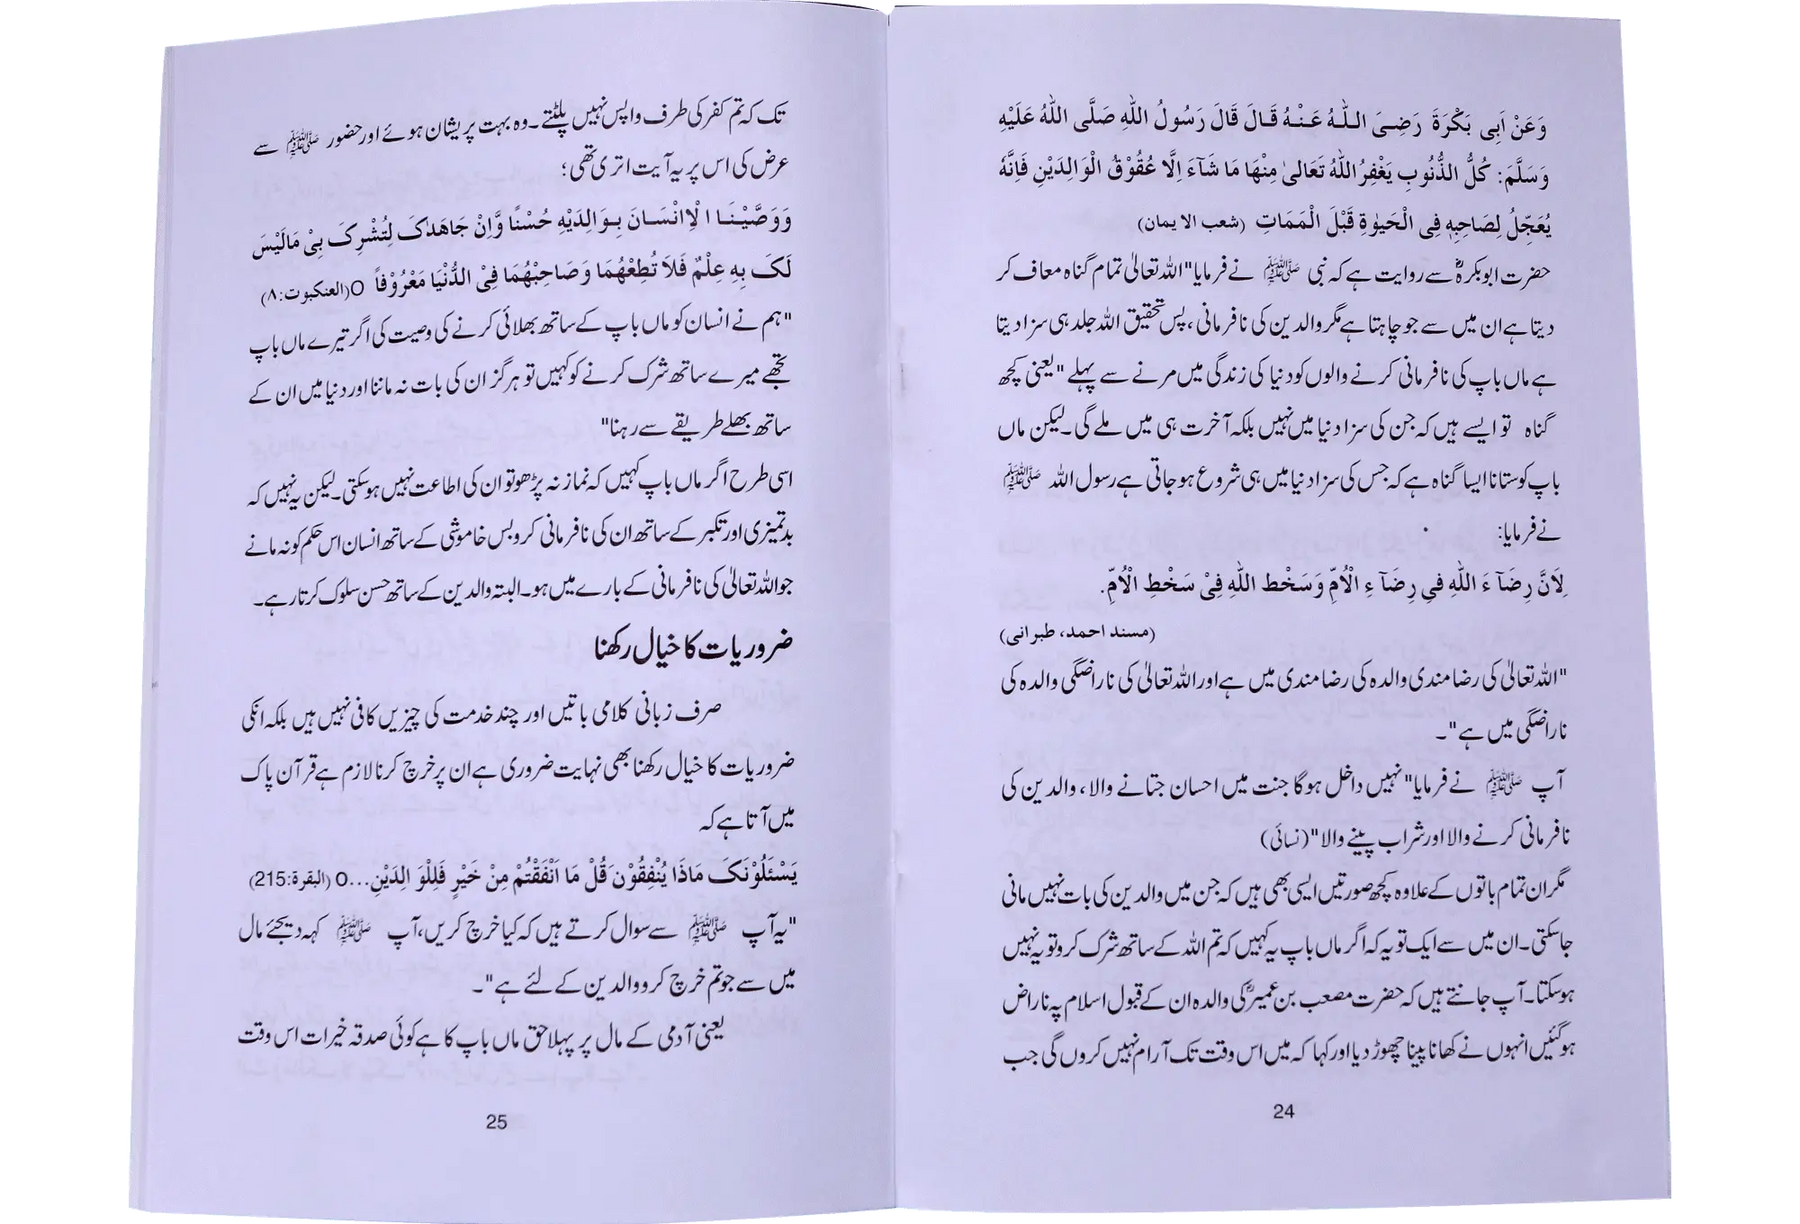 وَعَنْ اَبِی بَکْرَةَ رَضِیَ اللّٰہُ عَنْہُ قَالَ قَالَ رَسُولُ اللّٰہِ صَلَّی اللّٰہُ عَلَیْہِ
وَسَلَّمَ: کُلُّ الذُّنُوبِ یَغْفِرُ اللّٰہُ تَعَالیٰ مِنْھَا مَا شَآءَ اِلَّا عُقُوْقُ الْوَالِدَیْنِ فَاِنَّہٗ
یُعَجِّلُ لِصَاحِبِہٖ فِی الْحَیٰوۃِ قَبْلَ الْمَمَاتِ (شعب الایمان)
حضرت ابوبکرہؓ سے روایت ہے کہ نبی ﷺ نے فرمایا "اللہ تعالیٰ تمام گناہ معاف کر
دیتا ہے ان میں سے جو چاہتا ہے مگر والدین کی نافرمانی، پس تحقیق اللہ جلد ہی سزا دیتا
ہے ماں باپ کی نافرمانی کرنے والوں کو دنیا کی زندگی میں مرنے سے پہلے" یعنی کچھ
گناہ تو ایسے ہیں کہ جن کی سزا دنیا میں نہیں بلکہ آخرت ہی میں ملے گی۔ لیکن ماں
باپ کو ستانا ایسا گناہ ہے کہ جس کی سزا دنیا میں ہی شروع ہو جاتی ہے رسول اللہ ﷺ
نے فرمایا:
لِاَنَّ رِضَآءَ اللّٰہِ فِی رِضَآءِ الْاُمِّ وَسَخْط اللّٰہِ فِیْ سَخْطِ الْاُمِّ.
(مسند احمد، طبرانی)
"اللہ تعالیٰ کی رضامندی والدہ کی رضامندی میں ہے اور اللہ تعالیٰ کی ناراضگی والدہ کی
ناراضگی میں ہے"۔
آپ ﷺ نے فرمایا "نہیں داخل ہوگا جنت میں احسان جتانے والا، والدین کی
نافرمانی کرنے والا اور شراب پینے والا" (نسائی)
مگر ان تمام باتوں کے علاوہ کچھ صورتیں ایسی بھی ہیں کہ جن میں والدین کی بات نہیں مانی
جاسکتی۔ ان میں سے ایک تو یہ کہ اگر ماں باپ یہ کہیں کہ تم اللہ کے ساتھ شرک کرو تو یہ نہیں
ہو سکتا۔ آپ جانتے ہیں کہ حضرت مصعب بن عمیرؓ کی والدہ ان کے قبول اسلام پہ ناراض
ہو گئیں انہوں نے کھانا پینا چھوڑ دیا اور کہا کہ میں اس وقت تک آرام نہیں کروں گی جب
24
تک کہ تم کفر کی طرف واپس نہیں پلٹتے۔ وہ بہت پریشان ہوئے اور حضور ﷺ سے
عرض کی اس پر یہ آیت اتری تھی؛
وَوَصَّیْنَا الْاِنْسَانَ بِوَالِدَیْہِ حُسْنًا وَّاِنْ جَاھَدٰکَ لِتُشْرِکَ بِیْ مَالَیْسَ
لَکَ بِہٖ عِلْمٌ فَلَا تُطِعْھُمَا وَصَاحِبْھُمَا فِیْ الدُّنْیَا مَعْرُوْفاً O (العنکبوت:۸)
"ہم نے انسان کو ماں باپ کے ساتھ بھلائی کرنے کی وصیت کی اگر تیرے ماں باپ
تجھے میرے ساتھ شرک کرنے کو کہیں تو ہرگز ان کی بات نہ ماننا اور دنیا میں ان کے
ساتھ بھلے طریقے سے رہنا"
اسی طرح اگر ماں باپ کہیں کہ نماز نہ پڑھو تو ان کی اطاعت نہیں ہو سکتی۔ لیکن یہ نہیں کہ
بدتمیزی اور تکبر کے ساتھ ان کی نافرمانی کرو بس خاموشی کے ساتھ انسان اس حکم کو نہ مانے
جو اللہ تعالیٰ کی نافرمانی کے بارے میں ہو۔ البتہ والدین کے ساتھ حسن سلوک کرتا رہے۔
ضروریات کا خیال رکھنا
صرف زبانی کلامی باتیں اور چند خدمت کی چیزیں کافی نہیں ہیں بلکہ انکی
ضروریات کا خیال رکھنا بھی نہایت ضروری ہے ان پر خرچ کرنا لازم ہے قرآن پاک
میں آتا ہے کہ
یَسْئَلُوْنَکَ مَاذَا یُنْفِقُوْنَ قُلْ مَا اَنْفَقْتُمْ مِنْ خَیْرٍ فَلِلْوَالِدَیْنِ...O (البقرة:215)
"یہ آپ ﷺ سے سوال کرتے ہیں کہ کیا خرچ کریں، آپ ﷺ کہہ دیجئے مال
میں سے جو تم خرچ کرو والدین کے لئے ہے"۔
یعنی آدمی کے مال پر پہلا حق ماں باپ کا ہے کوئی صدقہ خیرات اس وقت
25